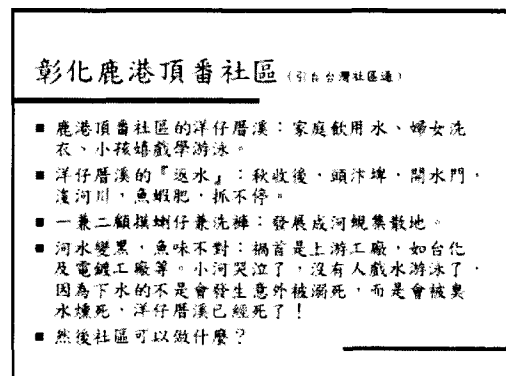 彰化鹿港頂番社區(引自台灣社區通)
■ 鹿港頂番社區的洋仔厝溪：家庭飲用水、婦女洗
衣、小孩嬉戲學游泳。
■ 洋仔厝溪的『返水』：秋收後，頭汴埤，開水門，
濱河川，魚蝦肥，抓不停。
■ 一兼二顧摸蜊仔兼洗褲：發展成河蜆集散地。
■ 河水變黑，魚味不對：禍首是上游工廠，如台化
及電鍍工廠等。小河哭泣了，沒有人戲水游泳了，
因為下水的不是會發生意外被溺死，而是會被臭
水燻死，洋仔厝溪已經死了！
■ 然後社區可以做什麼？